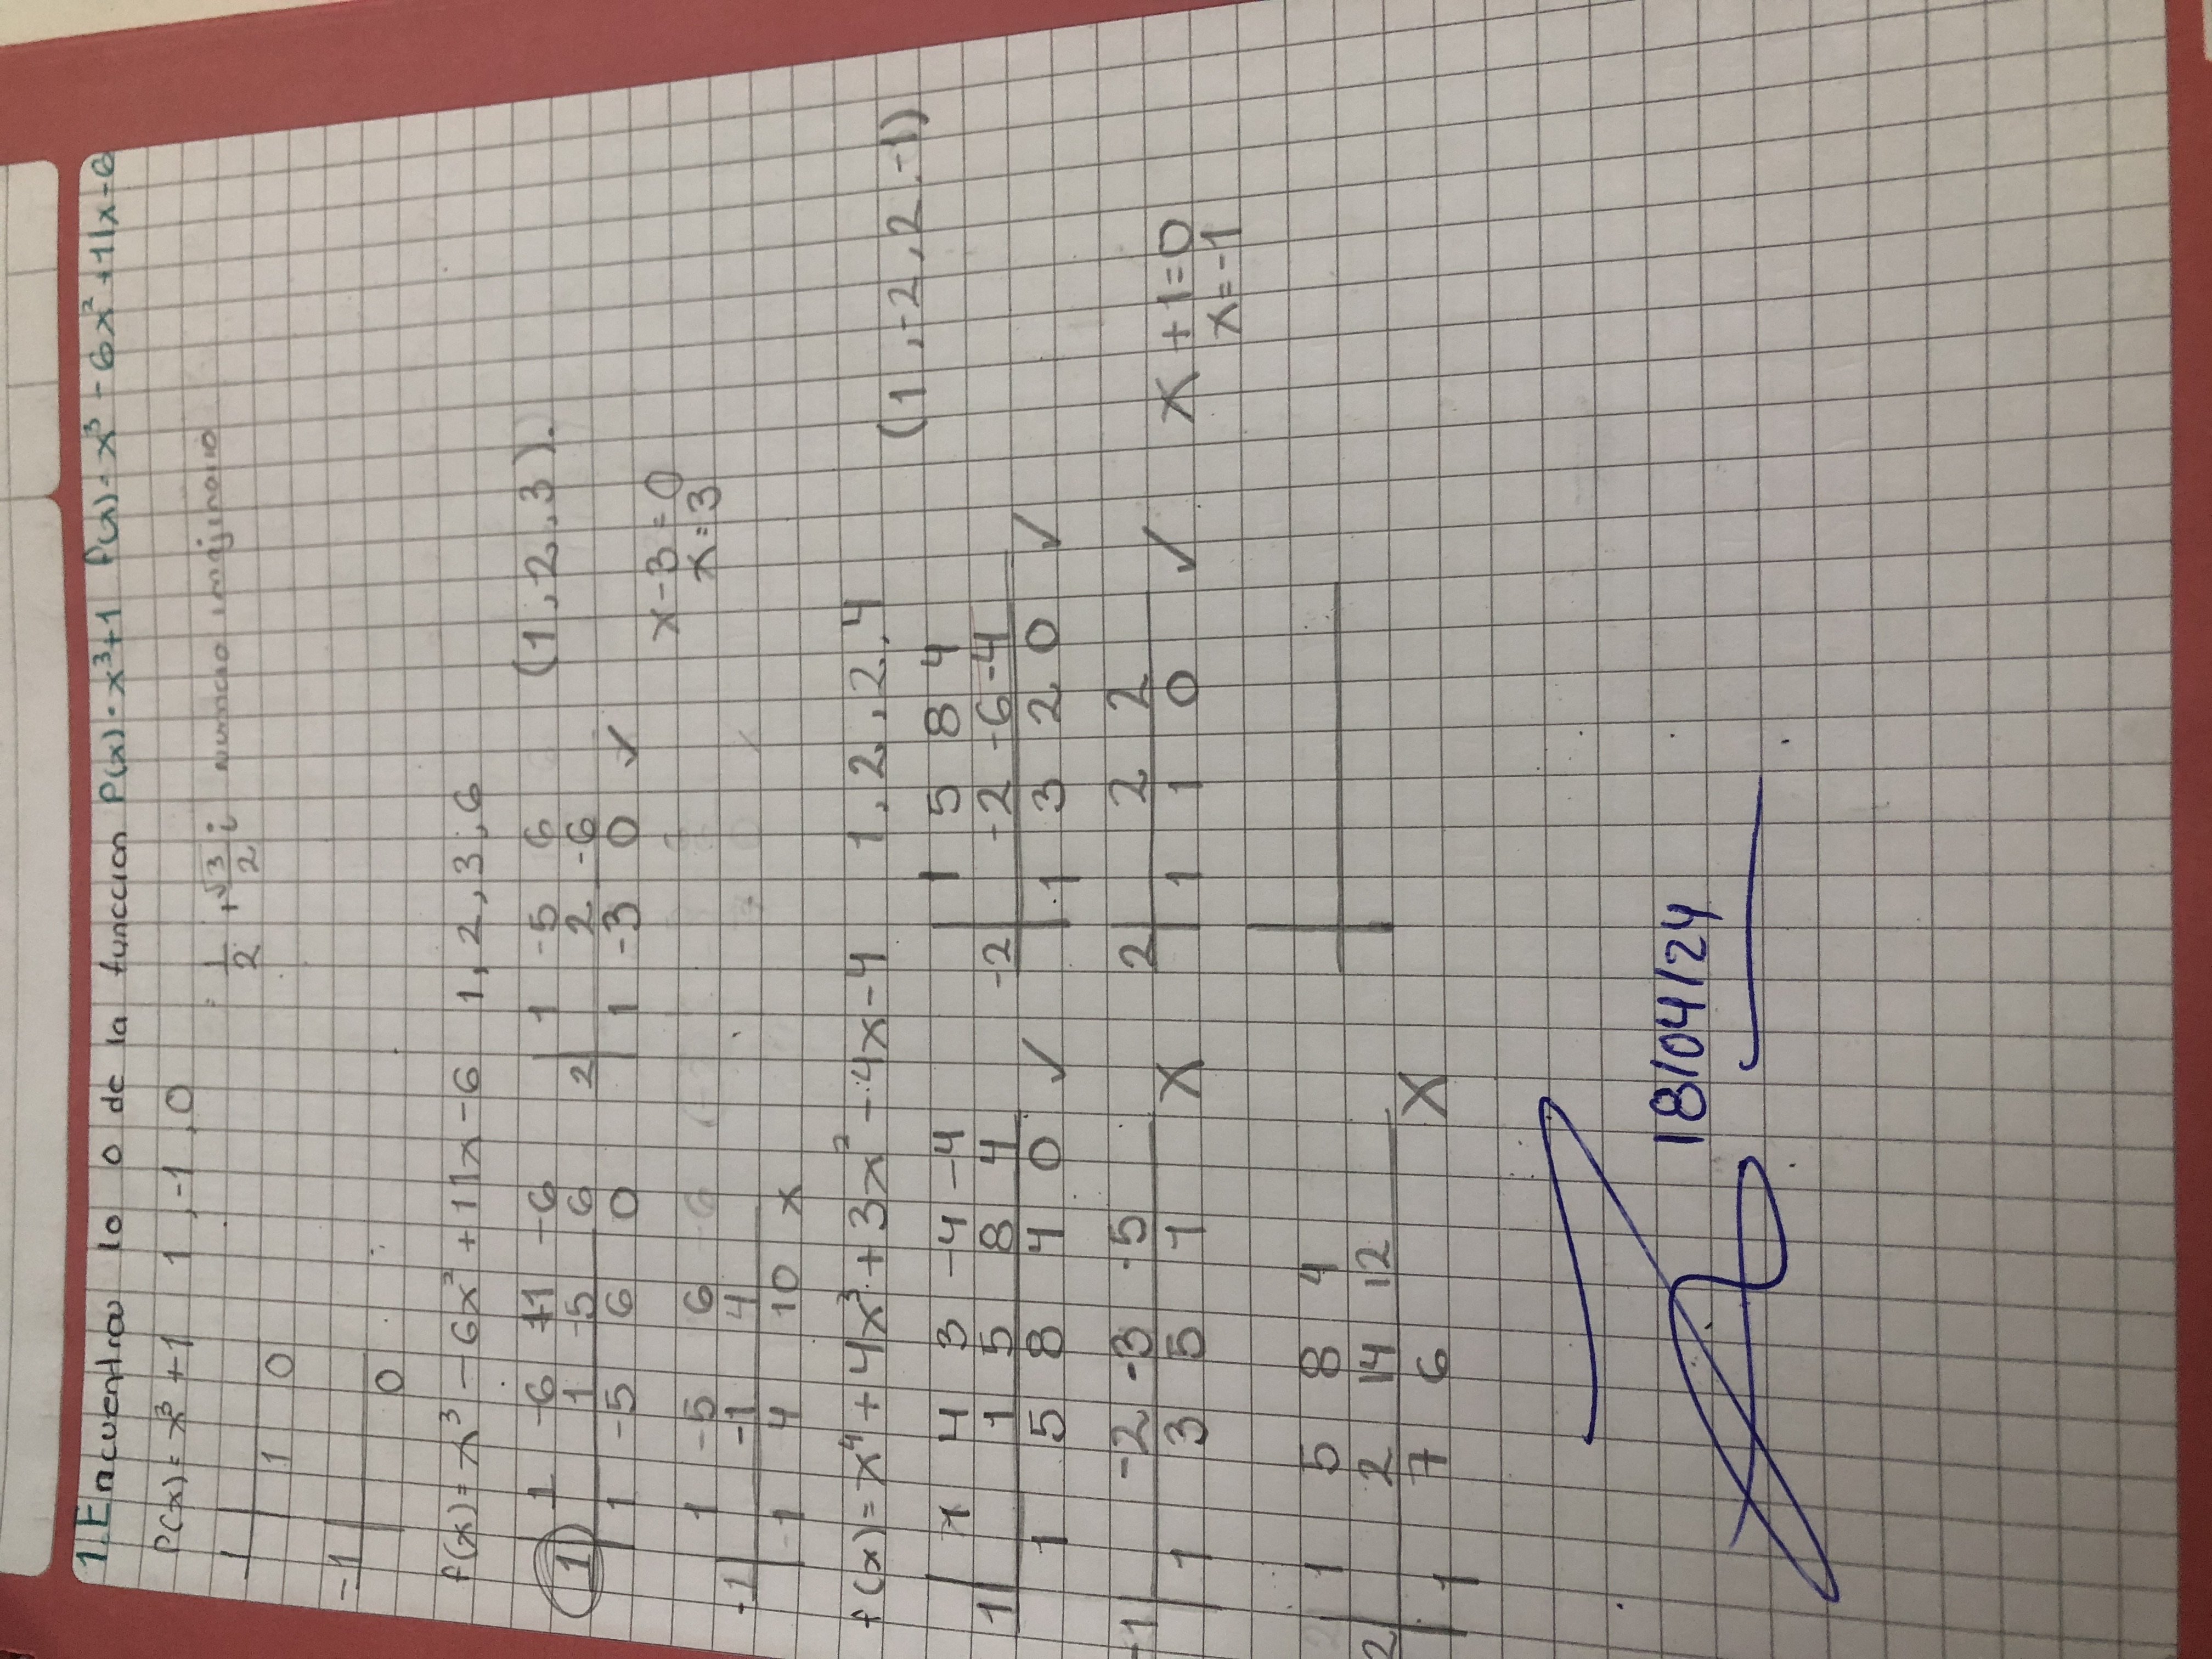 1. Encuentra lo 0 de la funccion P(x)=x³+1 f(x)=x³-6x²+11x-6
P(x)=x³+1 1,-1,0
1 0
1/2 + √3/2 i numero imajinario
-1
0
f(x)=x³-6x²+11x-6 1,2,3,6
1 -6 11 -6
1 1 -5 6
1 -5 6 0
1 -5 6
2 2 -6
1 -3 0 ✓
(1,2,3).
x-3=0
x=3
1 -5 6
-1 -1 4
1 4 10 x
f(x)=x⁴+4x³+3x²-4x-4 1,2,2,4
4 3 -4 -4
1 1 5 8 4
1 5 8 4 0 ✓
1 5 8 4
-2 -2 -6 -4
1 3 2 0 ✓
(1,-2,2,-1)
-1 -2 -3 -5
1 3 5 1 X
2 2 2
1 1 0 ✓
x+1=0
x=-1
1 5 8 4
2 2 14 12
1 7 6 X
18/04/24